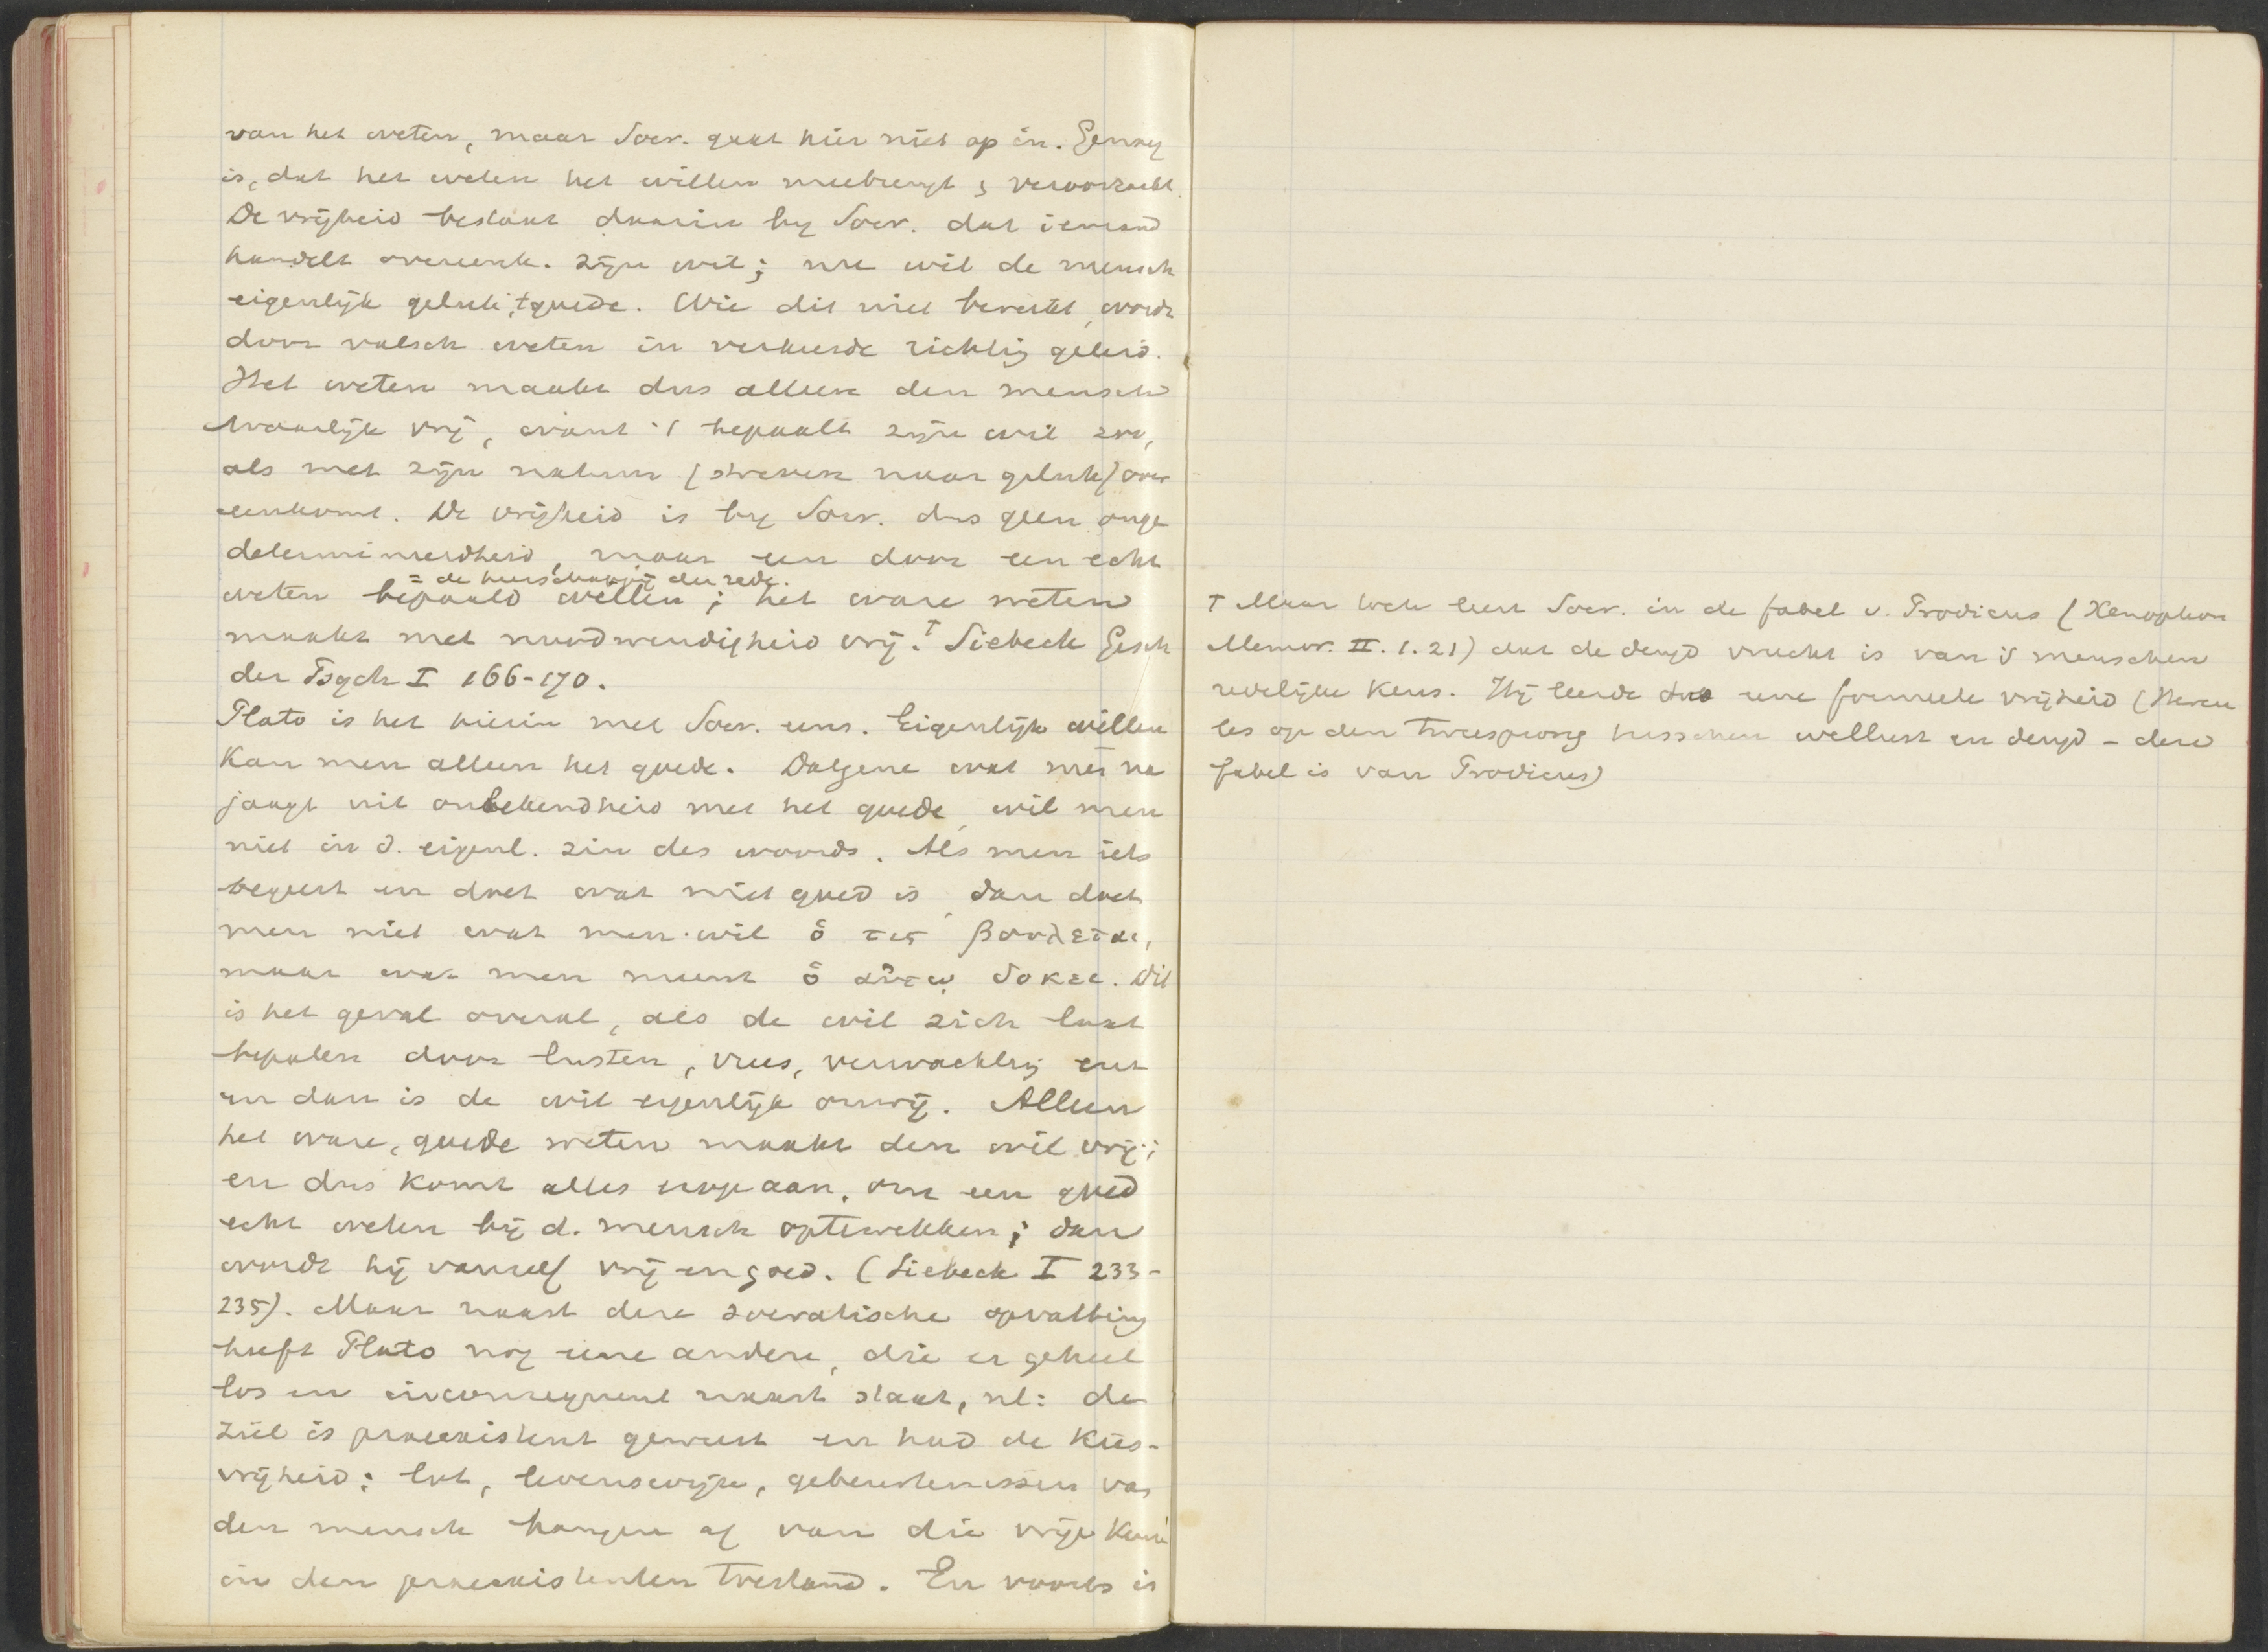 van het weten, maar Socr. gaat hier niet op in. Genoeg
is, dat het weten het willen meebrengt & veroorzaakt.
De vrijheid bestaat daarin by Socr. dat iemand
handelt overeenk. zijn wil; nu wil de mensch
eigenlijk geluk, 't goede. Wie dit niet bereikt, wordt
door valsch weten in verkeerde richtig geleid.
Het weten maakt dus alleen den mensch
waarlijk vrij, want 't bepaalt zijn wil zoo,
als met zijn natuur (streven naar geluk) over
eenkomt. De vrijheid is by Socr. dus geen onge
determineerdheid, maar een door een echt
= de heerschappij der rede.
weten bepaald willen; het ware weten
maakt met noodwendigheid vrij. † Siebeck Gesch
der Psych I 166-170.
Plato is het hierin met Socr. eens. Eigenlijk willen
kan men alleen het goede. Datgene wat men na
jaagt uit onbekendheid met het goede, wil men
niet in d. eigenl. zin des woords. Als men iets
begeert en doet wat niet goed is, dan doet
men niet wat men wil ὅ τις βούλεται,
maar wat men meent ὅ αὐτῳ δοκεε. Dit
is het geval overal, als de wil zich laat
bepalen door lusten, vrees, verwachtig enz
en dan is de wil eigenlijk onvrij. Alleen
het ware, goede weten maakt den wil vrij;
en dus komt alles erop aan, om een goed
echt weten bij d. mensch optewekken; dan
wordt hij vanzelf vrij en goed. (Siebeck I 233-
235). Maar naast deze socratische opvatting
heeft Plato nog eene andere, die er geheel
los en inconsequent naast staat, nl: de
ziel is praeexistent geweest en had de kies-
vrijheid; lot, levenswijze, gebeurtenissen van
den mensch hangen af van die vrije keuze
in den praeexistenten toestand. En voorts is
† Maar toch leert Socr. in de fabel v. Prodicus (Xenophon
Memor. II. 1. 21) dat de deugd vrucht is van 's menschen
redelijke keus. Hij leerde dus eene formeele vrijheid (Hercu
les op den tweesprong tusschen wellust en deugd - deze
fabel is van Prodicus)